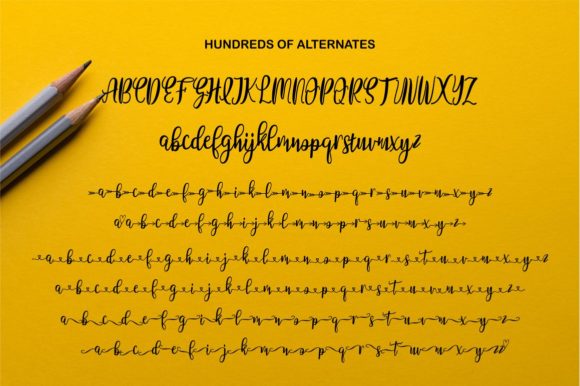 HUNDREDS OF ALTERNATES
ABCDEFGHIJKLMNOPQRSTUVWXYZ
abcdefghijklmnopqrstuvwxyz
a b c d e f g h i j k l m n o p q r s t u v w x y z
a b c d e f g h i j k l m n o p q r s t u v w x y z
a b c d e f g h i j k l m n o p q r s t u v w x y z
a b c d e f g h i j k l m n o p q r s t u v w x y z
a b c d e f g h i j k l m n o p q r s t u v w x y z
a b c d e f g h i j k l m n o p q r s t u v w x y z